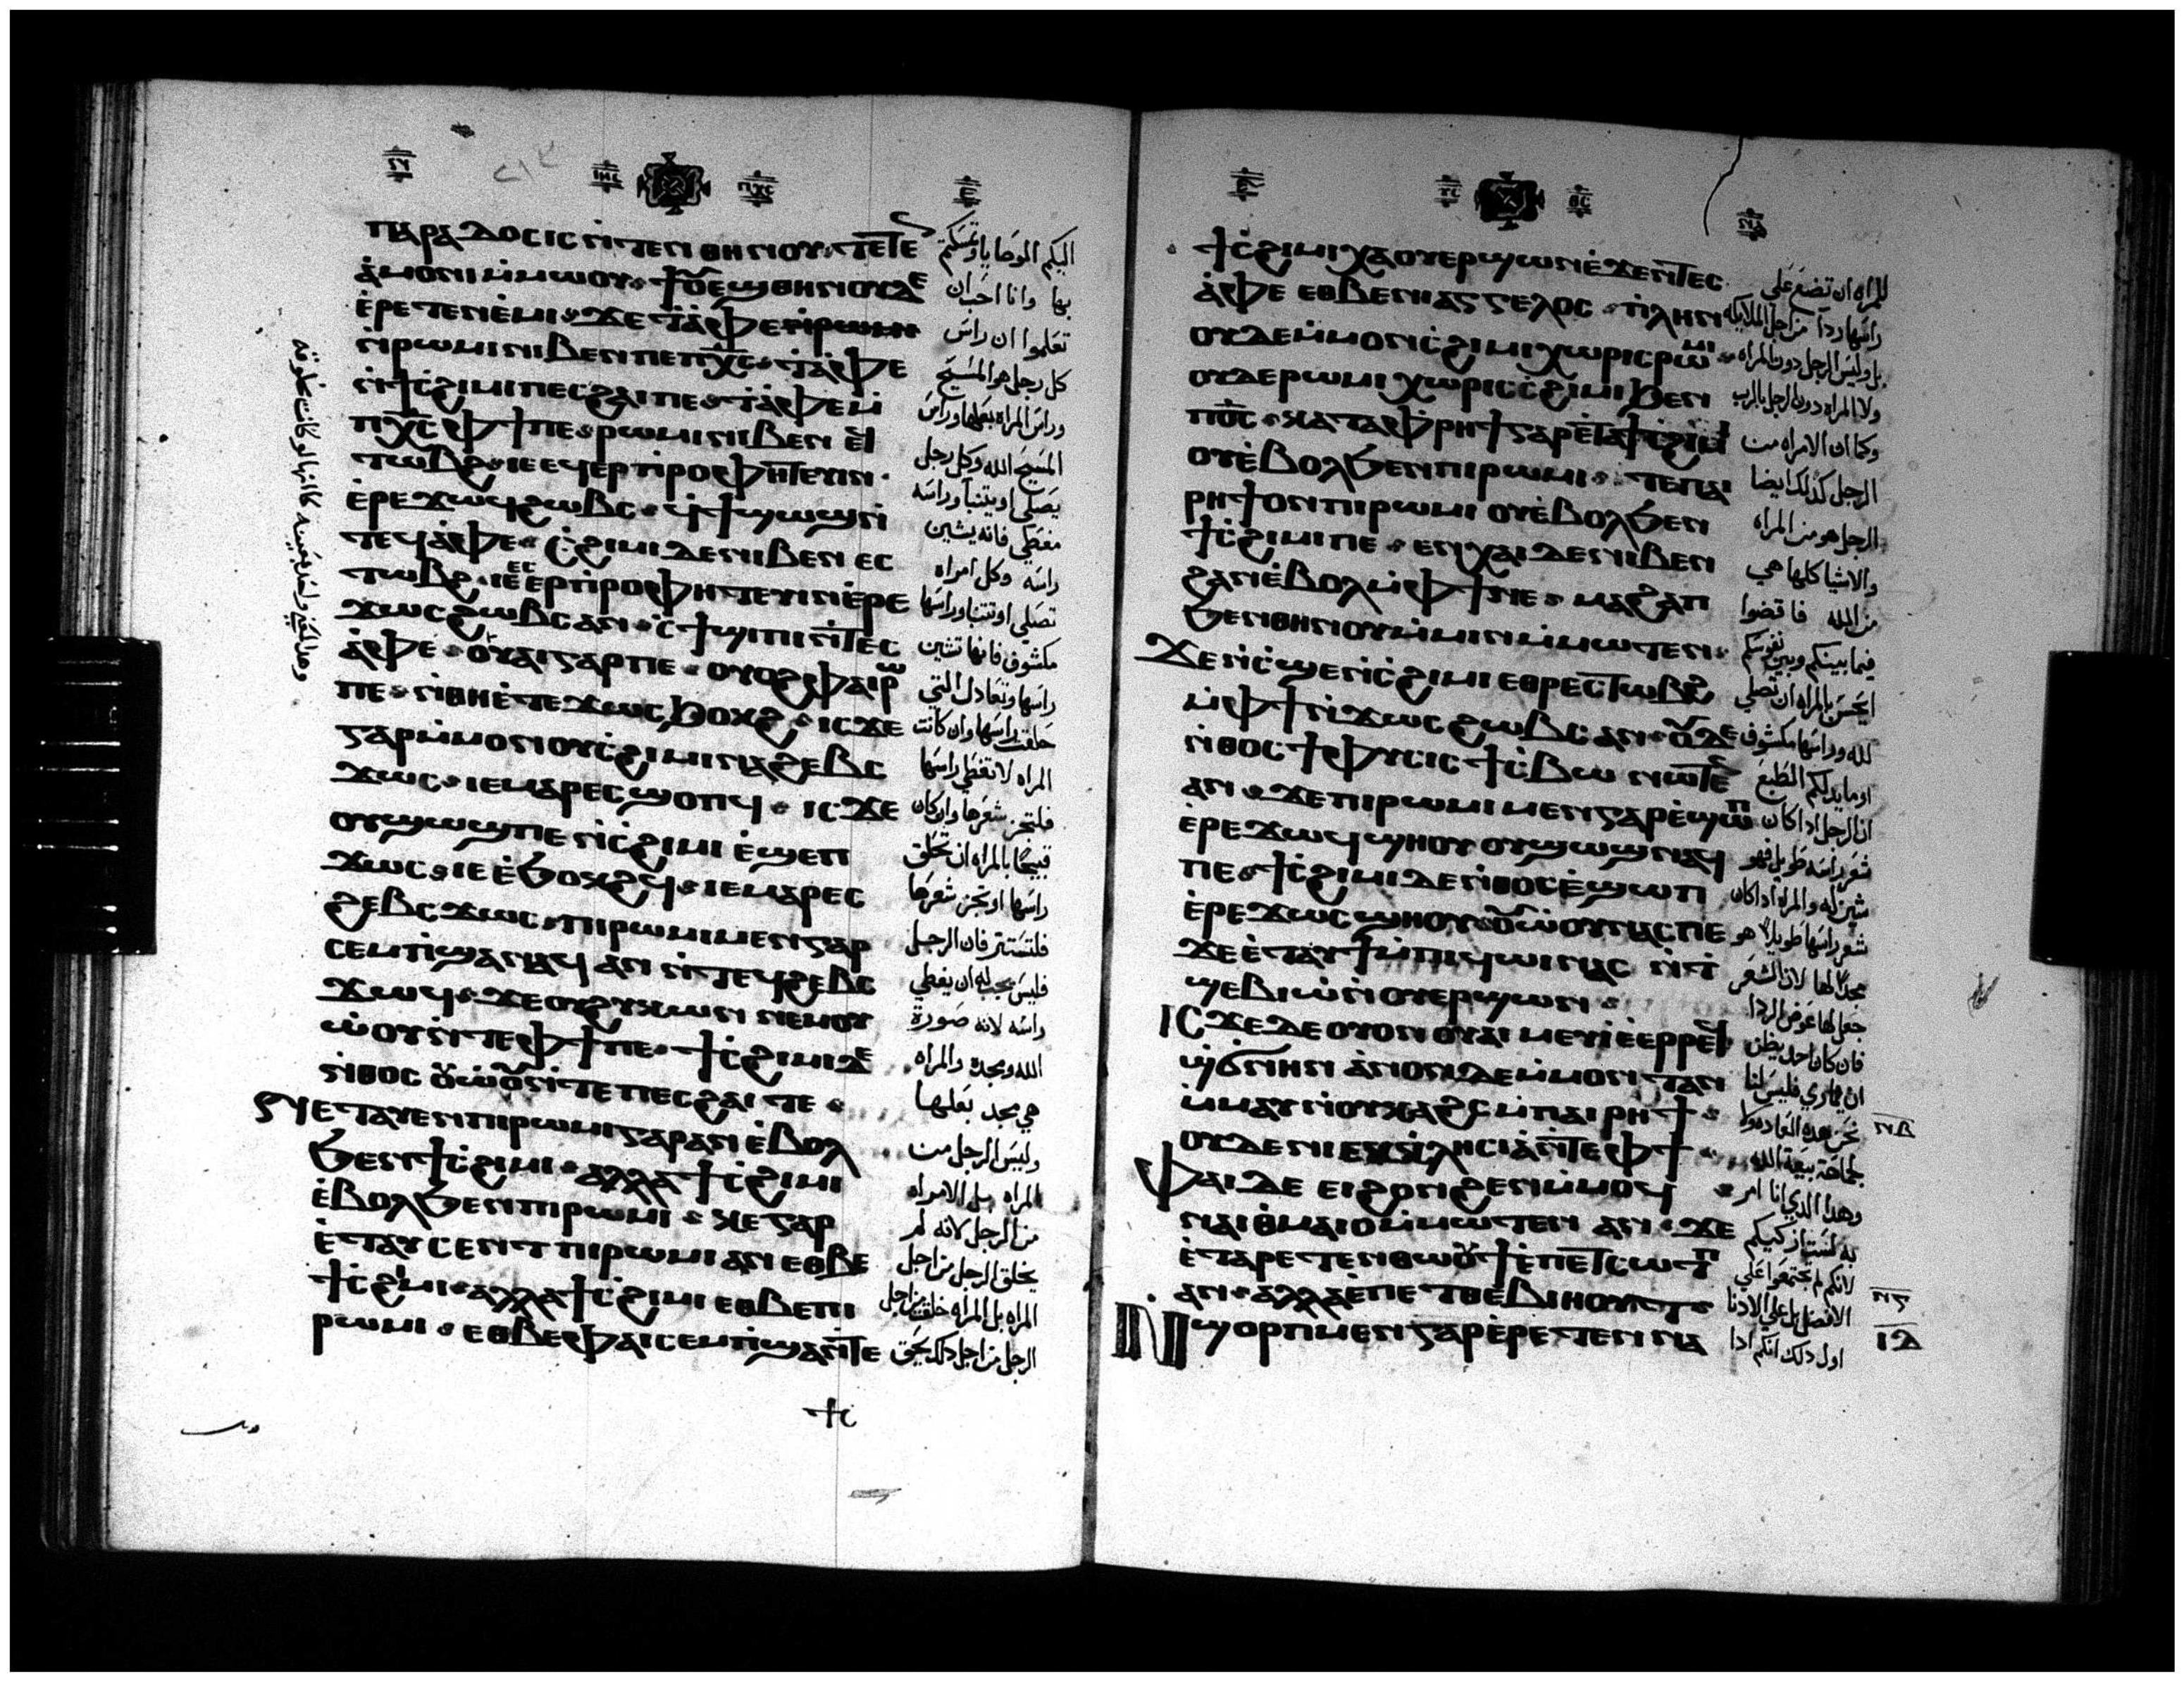 ⲓⲏⲥ ⲡⲭⲥ ⲉ
ⲡⲁⲣⲁⲇⲟⲥⲓⲥ ⲛ̀ⲧⲉⲛ ⲑⲏⲛⲟⲩ ⲧⲉⲧⲉ
ⲁ̀ⲙⲟⲛⲓ ⲙ̀ⲙⲱⲟⲩ ϯⲟⲩⲉϣ ⲑⲏⲛⲟⲩ ⲇⲉ
ⲉ̀ⲣⲉⲧⲉⲛⲉ̀ⲙⲓ ϫⲉ ⲧ̀ⲁ̀ⲫⲉ
ⲛ̀ⲣⲱⲙⲓ ⲛⲓⲃⲉⲛ ⲡⲉ ⲡⲭ̅ⲥ̅ ⲧ̀ⲁ̀ⲫⲉ
ⲛ̀ϯⲥ̀ϩⲓⲙⲓ ⲡⲉⲥϩⲁⲓ ⲡⲉ ⲧ̀ⲁ̀ⲫⲉ ⲙ̀
ⲡⲭ̅ⲥ̅ ⲫϯ ⲡⲉ ⲣⲱⲙⲓ ⲛⲓⲃⲉⲛ ⲉϥ
ⲧⲱⲃϩ ⲓⲉ ⲉϥⲉⲣⲡ̀ⲣⲟⲫⲏⲧⲉⲩⲓⲛ
ⲉ̀ⲣⲉ ϫⲱϥ ϩⲱⲃⲥ ϥ̀ϯϣⲱϣ ⲛ̀
ⲧⲉϥⲁ̀ⲫⲉ ⲥ̀ϩⲓⲙⲓ ⲇⲉ ⲛⲓⲃⲉⲛ ⲉⲥ
ⲧⲱⲃϩ ⲓⲉ ⲉⲥⲉⲣⲡ̀ⲣⲟⲫⲏⲧⲉⲩⲓⲛ ⲉ̀ⲣⲉ
ϫⲱⲥ ϩⲱⲃⲥ ⲁⲛ ⲥ̀ϯϣⲓⲡⲓ ⲛ̀ⲧⲉⲥ
ⲁ̀ⲫⲉ ⲟⲩⲁⲓ ⲅⲁⲣ ⲡⲉ ⲟⲩⲟϩ ⲫⲁⲓ ⲣⲱ
ⲡⲉ ⲛ̀ⲑⲏ ⲉ̀ⲧⲉ ϫⲱⲥ ϧⲟⲕϩ ⲓⲥϫⲉ
ⲅⲁⲣ ⲙ̀ⲙⲟⲛ ⲟⲩⲥ̀ϩⲓⲙⲓ ⲛⲁϩⲉⲃⲥ
ϫⲱⲥ ⲓⲉ ⲙⲁⲣⲉⲥϣⲟⲡϥ ⲓⲥϫⲉ
ⲟⲩϣⲱϣ ⲡⲉ ⲛ̀ⲥ̀ϩⲓⲙⲓ ⲉ̀ϣⲉⲡ
ϫⲱⲥ ⲓⲉ ⲉ̀ϧⲟⲕϩϥ ⲓⲉ ⲙⲁⲣⲉⲥ
ϩⲉⲃⲥ ϫⲱⲥ ⲡⲓⲣⲱⲙⲓ ⲙⲉⲛ ⲅⲁⲣ
ⲥⲉⲙ̀ⲡ̀ϣⲁ ⲛⲁϥ ⲁⲛ ⲛ̀ⲧⲉϥϩⲉⲃⲥ
ϫⲱϥ ϫⲉ ⲟⲩϩⲩⲕⲱⲛ ⲛⲉⲙ ⲟⲩ
ⲱ̀ⲟⲩ ⲛ̀ⲧⲉ ⲫϯ ⲡⲉ ϯⲥ̀ϩⲓⲙⲓ ⲇⲉ
ⲛ̀ⲑⲟⲥ ⲟⲩⲱ̀ⲟⲩ ⲛ̀ⲧⲉ ⲡⲉⲥϩⲁⲓ ⲧⲉ
ⲉⲧⲁⲩⲉⲛ ⲡⲓⲣⲱⲙⲓ ⲅⲁⲣ ⲁⲛ ⲉ̀ⲃⲟⲗ
ϧⲉⲛ ϯⲥ̀ϩⲓⲙⲓ ⲁⲗⲗⲁ ϯⲥ̀ϩⲓⲙⲓ
ⲉ̀ⲃⲟⲗ ϧⲉⲛ ⲡⲓⲣⲱⲙⲓ ⲕⲉ ⲅⲁⲣ
ⲉ̀ⲧⲁⲩⲥⲉⲛⲧ ⲡⲓⲣⲱⲙⲓ ⲁⲛ ⲉⲑⲃⲉ
ϯⲥ̀ϩⲓⲙⲓ ⲁⲗⲗⲁ ϯⲥ̀ϩⲓⲙⲓ ⲉⲑⲃⲉ ⲡⲓ
ⲣⲱⲙⲓ ⲉⲑⲃⲉ ⲫⲁⲓ ⲥⲉⲙ̀ⲡ̀ϣⲁ ⲛ̀ⲧⲉ
ϯⲥ̀
اليكم الوصايا وتمسكتم
بها وانا احب ان
تعلموا ان راس
كل رجل هو المسيح
وراس المراه بعلها وراس
المسيح الله وكل رجل
يصلى او يتنبا وراسه
مغطى فانه يشين
راسه وكل امراه
تصلى او تتنبا وراسها
مكشوف فانها تشين
راسها وتعادل التى
حلقت راسها وان كانت
المراه لا تغطى راسها
فلتجز شعرها وان كان
قبيحا بالمراه ان تحلق
راسها او تجز شعرها
فلتستتر فان الرجل
فليس يجب له ان يغطي
راسه لانه صورة
الله ومجده والمراه
هي مجد بعلها
وليس الرجل من
المراه بل الامراه
من الرجل لانه لم
يخلق الرجل من اجل
المراه بل المراه خلقت من اجل
الرجل من اجل ذلك يحق
ⲩⲥ ⲑⲥ
ϯⲥ̀ϩⲓⲙⲓ ⲭⲁ ⲟⲩⲉⲣϣⲱⲛ ⲉ̀ϫⲉⲛ ⲧⲉⲥ
ⲁ̀ⲫⲉ ⲉⲑⲃⲉ ⲛⲓⲁⲅⲅⲉⲗⲟⲥ ⲡ̀ⲗⲏⲛ
ⲟⲩⲇⲉ ⲙ̀ⲙⲟⲛ ⲥ̀ϩⲓⲙⲓ ⲭⲱⲣⲓⲥ ⲣⲱⲙⲓ
ⲟⲩⲇⲉ ⲣⲱⲙⲓ ⲭⲱⲣⲓⲥ ⲥ̀ϩⲓⲙⲓ ϧⲉⲛ
ⲡⲟ̅ⲥ̅ ⲕⲁⲧⲁ ⲫ̀ⲣⲏϯ ⲅⲁⲣ ⲉ̀ⲧⲁ ϯⲥ̀ϩⲓⲙⲓ
ⲟⲩⲉ̀ⲃⲟⲗ ϧⲉⲛ ⲡⲓⲣⲱⲙⲓ ⲧⲉ ⲡⲁⲓ
ⲣⲏϯ ⲟⲛ ⲡⲓⲣⲱⲙⲓ ⲟⲩⲉ̀ⲃⲟⲗ ϧⲉⲛ
ϯⲥ̀ϩⲓⲙⲓ ⲡⲉ ⲉⲛⲭⲁⲓ ⲇⲉ ⲛⲓⲃⲉⲛ
ϩⲁⲛⲉ̀ⲃⲟⲗ ⲙ̀ⲫϯ ⲛⲉ ⲙⲁϩⲁⲡ
ϧⲉⲛ ⲑⲏⲛⲟⲩ ⲙ̀ⲙⲓⲛ ⲙ̀ⲙⲱⲧⲉⲛ
ϫⲉ ⲛ̀ⲥ̀ϣⲉ ⲛ̀ⲥ̀ϩⲓⲙⲓ ⲉⲑⲣⲉⲥⲧⲱⲃϩ
ⲙ̀ⲫϯ ⲛ̀ϫⲱⲥ ϩⲱⲃⲥ ⲁⲛ ⲟⲩⲇⲉ
ⲛ̀ⲑⲟⲥ ϯⲫⲩⲥⲓⲥ ϯⲥ̀ⲃⲱ ⲛⲱⲧⲉⲛ
ⲁⲛ ϫⲉ ⲡⲓⲣⲱⲙⲓ ⲙⲉⲛ ⲅⲁⲣ ⲉ̀ϣⲱⲡ
ⲉ̀ⲣⲉ ϫⲱϥ ϣⲏⲟⲩ ⲟⲩϣⲱϣ ⲛⲁϥ
ⲡⲉ ϯⲥ̀ϩⲓⲙⲓ ⲇⲉ ⲛ̀ⲑⲟⲥ ⲉ̀ϣⲱⲡ
ⲉ̀ⲣⲉ ϫⲱⲥ ϣⲏⲟⲩ ⲟⲩⲱ̀ⲟⲩ ⲛⲁⲥ ⲡⲉ
ϫⲉ ⲉ̀ⲧⲁⲩϯ ⲙ̀ⲡⲓϥⲱⲓ ⲛⲁⲥ ⲛ̀ⲧ̀
ϣⲉⲃⲓⲱ̀ ⲛ̀ⲟⲩⲉⲣϣⲱⲛ
ⲓⲥϫⲉ ⲇⲉ ⲟⲩⲟⲛ ⲟⲩⲁⲓ ⲙⲉⲩⲓ̀ ⲉ̀ⲉⲣⲣⲉϥ
ϣ̀ϭⲛⲏⲛ ⲁ̀ⲛⲟⲛ ⲇⲉ ⲙ̀ⲙⲟⲛ ⲧⲁⲛ
ⲙ̀ⲙⲁⲩ ⲛ̀ⲟⲩⲕⲁϩⲥ ⲙ̀ⲡⲁⲓⲣⲏϯ
ⲟⲩⲇⲉ ⲛⲓⲉⲕⲕⲗⲏⲥⲓⲁ̀ ⲛ̀ⲧⲉ ⲫϯ
ⲫⲁⲓ ⲇⲉ ⲉⲓϩⲟⲛϩⲉⲛ ⲙ̀ⲙⲟϥ
ⲛⲁⲓⲑⲙⲁⲓⲟ ⲙ̀ⲙⲱⲧⲉⲛ ⲁⲛ ϫⲉ
ⲉ̀ⲧⲁⲣⲉⲧⲉⲛⲑⲱⲟⲩϯ ⲉ̀ⲡⲉⲧⲥⲱⲧⲡ
ⲁⲛ ⲁⲗⲗⲁ ⲉ̀ⲡⲉⲧⲑⲉⲃⲓⲏⲟⲩⲧ
ⲛ̀ϣⲟⲣⲡ ⲙⲉⲛ ⲅⲁⲣ ⲉ̀ⲣⲉⲧⲉⲛⲛⲁ
للمراه ان تضع على
راسها ردا من اجل الملايكه
بل وليس الرجل دون المراه
ولا المراه دون الرجل بالرب
وكما ان الامراه من
الرجل كذلك ايضا
الرجل هو من المراه
والاشيا كلها هي
من الله فاقضوا
فيما بينكم وبين نفوسكم
ايحسن بالمراه ان تصلي
لله وراسها مكشوف
اوما يدلكم الطبع
ان الرجل اذا كان
شعر راسه طويل فهو
شين له والمراه اذا كان
شعر راسها طويلا هو
مجدا لها لان الشعر
جعل لها عوض الردا
فان كان احد يظن
ان يماري فليس لنا
نحن هذه العاده ولا
لجماعة بيعة الله
وهذا الذي انا امر
به لست ازكيكم
لانكم لم تجتمعوا على
الافضل بل على الادنا
اول ذلك انكم اذا
ⲛⲃ
ⲛⲅ
ⲓⲇ